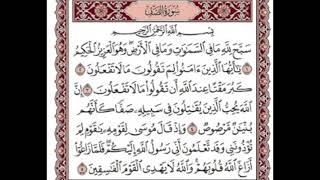 سُورَةُ الصَّفِّ
بِسْمِ اللَّهِ الرَّحْمَٰنِ الرَّحِيمِ
سَبَّحَ لِلَّهِ مَا فِي السَّمَاوَاتِ وَمَا فِي الْأَرْضِ وَهُوَ الْعَزِيزُ الْحَكِيمُ
١ يَا أَيُّهَا الَّذِينَ آمَنُوا لِمَ تَقُولُونَ مَا لَا تَفْعَلُونَ ٢
كَبُرَ مَقْتًا عِندَ اللَّهِ أَن تَقُولُوا مَا لَا تَفْعَلُونَ ٣ إِنَّ
اللَّهَ يُحِبُّ الَّذِينَ يُقَاتِلُونَ فِي سَبِيلِهِ صَفًّا كَأَنَّهُم
بُنْيَانٌ مَّرْصُوصٌ ٤ وَإِذْ قَالَ مُوسَىٰ لِقَوْمِهِ يَا قَوْمِ لِمَ
تُؤْذُونَنِي وَقَد تَّعْلَمُونَ أَنِّي رَسُولُ اللَّهِ إِلَيْكُمْ فَلَمَّا زَاغُوا
أَزَاغَ اللَّهُ قُلُوبَهُمْ وَاللَّهُ لَا يَهْدِي الْقَوْمَ الْفَاسِقِينَ ٥